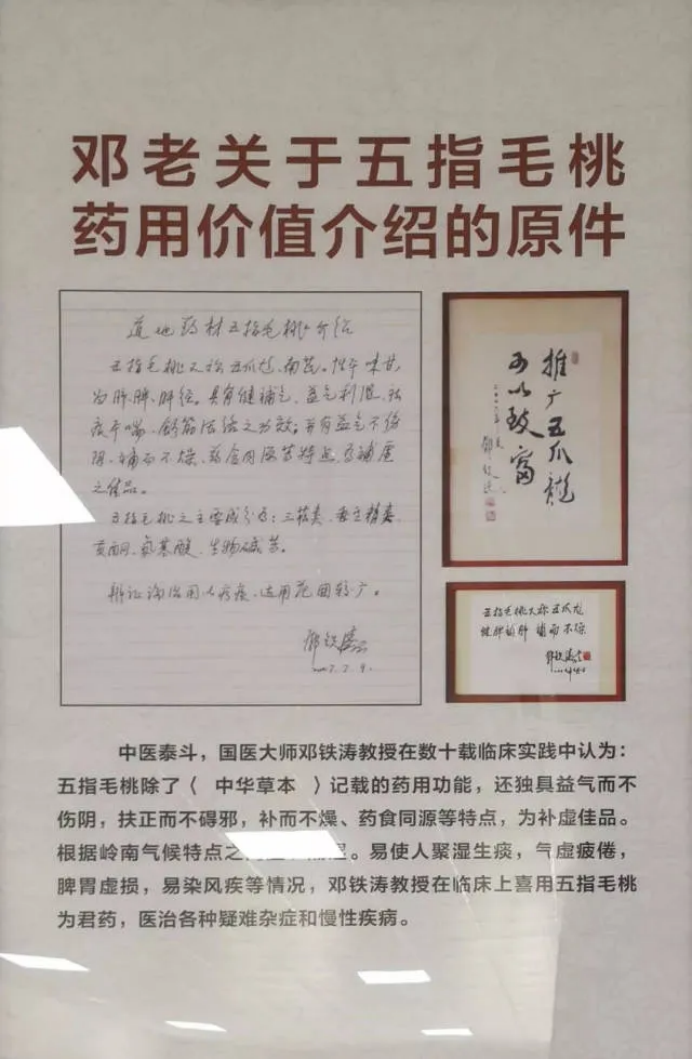 邓老关于五指毛桃
药用价值介绍的原件
道地药材五指毛桃介绍
五指毛桃又称五爪龙、南芪。性平味甘,
为肺、脾、肝经。具有健补气、益气利湿、祛
痰平喘、舒筋活络之功效。并有益气不伤
阴、补而不燥、药食同源等特点,乃补虚
之佳品。
五指毛桃之主要成分为:三萜类、香豆精类
黄酮、氨基酸、生物碱等。
辩证论治用人疗疾、适用范围较广。
邓铁涛
推广五爪龙
可以致富
邓铁涛
五指毛桃又称五爪龙
健脾益肺 補而不燥
邓铁涛
中医泰斗,国医大师邓铁涛教授在数十载临床实践中认为:
五指毛桃除了( 中华草本 )记载的药用功能,还独具益气而不
伤阴,扶正而不碍邪,补而不燥、药食同源等特点,为补虚佳品。
根据岭南气候特点之 。易使人聚湿生痰,气虚疲倦,
脾胃虚损,易染风疾等情况,邓铁涛教授在临床上喜用五指毛桃
为君药,医治各种疑难杂症和慢性疾病。